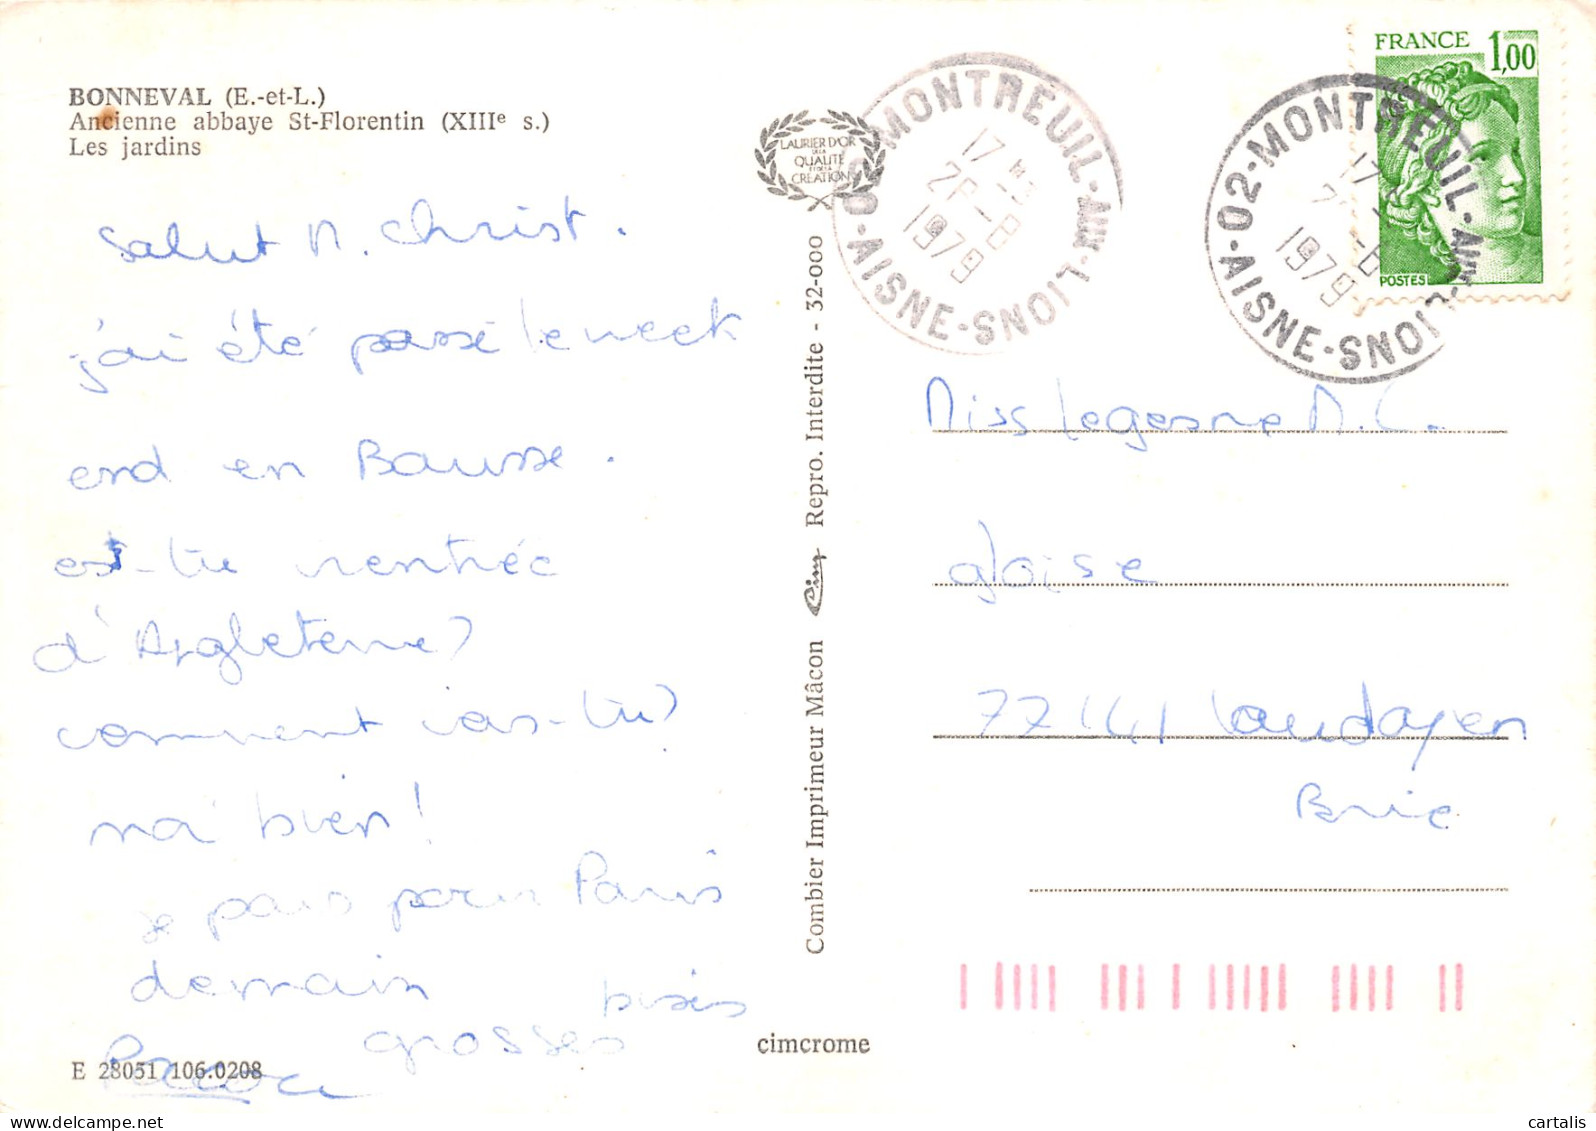 BONNEVAL (E.-et-L.)
Ancienne abbaye St-Florentin (XIIIe s.)
Les jardins
salut M. Christ.
j'ai été passé le week
end en Bausse.
es-tu rentrée
d'Angleterre?
comment vas-tu?
moi bien!
je pars pour Paris
demain
grosses bises
E 28051 106.0208
LAURIER D'OR
DE LA
QUALITÉ
ET DE LA
CRÉATION
Combier Imprimeur Mâcon Cim Repro. Interdite - 32-000
cimcrome
02-MONTREUIL-AUX-LIONS-AISNE
17 H
1979
FRANCE 1,00
POSTES
02-MONTREUIL-AUX-LIONS-AISNE
17 H
1979
Miss M. C.
77141 Vaudoy en
Brie
cartalis
delcampe.net